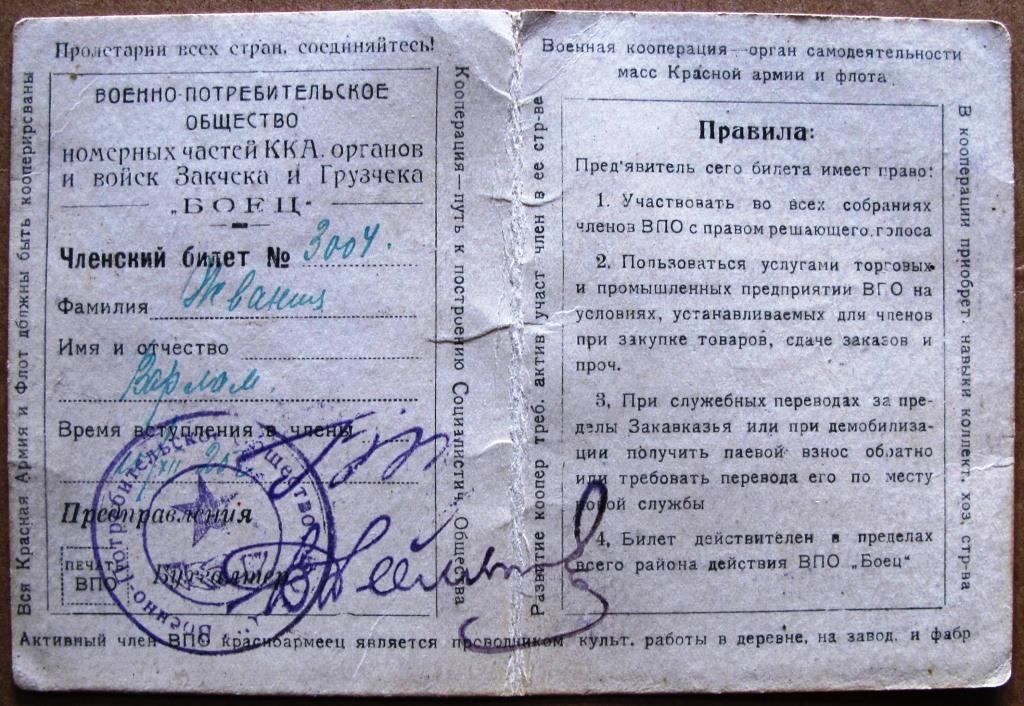 Пролетарии всех стран, соединяйтесь!
Вся Красная Армия и Флот должны быть кооперированы
ВОЕННО-ПОТРЕБИТЕЛЬСКОЕ
ОБЩЕСТВО
номерных частей ККА, органов
и войск Закчека и Грузчека
„БОЕЦ“
Членский билет № 3004.
Фамилия Жвания
Имя и отчество
Варлам.
Время вступления в члены
Предправления
ПЕЧАТЬ
ВПО
Бухгалтер
Военно-Потребительское Общество
Кооперация—путь к построению Социалистич. Общества
Активный член ВПО красноармеец является проводником культ. работы в деревне, на завод. и фабр
Военная кооперация—орган самодеятельности
масс Красной армии и флота
Развитие коопер треб. актив участ член в ее стр-ве
Правила:
Пред'явитель сего билета имеет право:
1. Участвовать во всех собраниях
членов ВПО с правом решающего голоса
2. Пользоваться услугами торговых
и промышленных предприятии ВГО на
условиях, устанавливаемых для членов
при закупке товаров, сдаче заказов и
проч.
3, При служебных переводах за пре-
делы Закавказья или при демобилиза-
ции получить паевой взнос обратно
или требовать перевода его по месту
новой службы
4, Билет действителен в пределах
всего района действия ВПО „Боец“
В кооперации приобрет. навыки коллект. хоз. стр-ва